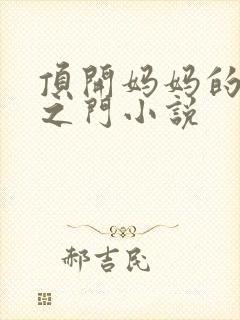 頂開妈妈的
之门小説
郝吉民